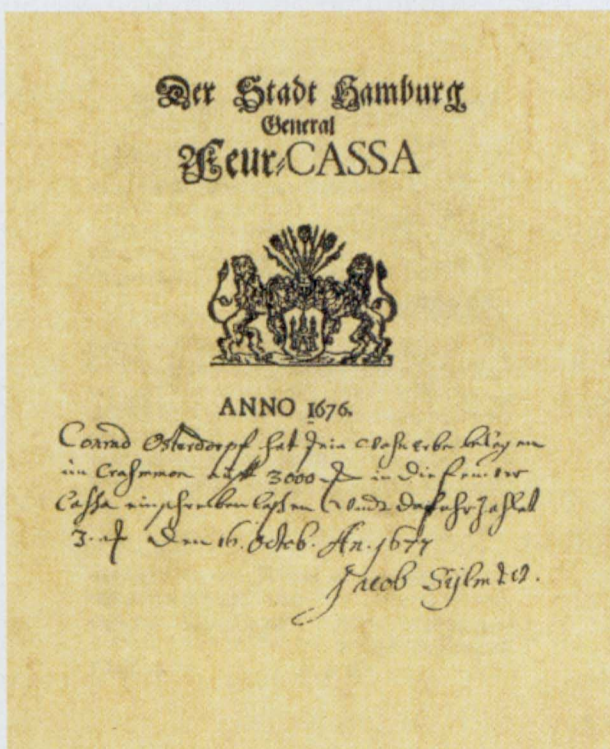 Der Stadt Hamburg
General
Feur-CASSA
ANNO 1676.
Conrad Osterdorpf hat sein wohnerbe belegen
im 3000 in die feuer
Cassa einschreiben laßen undt dafuhr zahlet
3. Den 16. Octob. An. 1677
Jacob